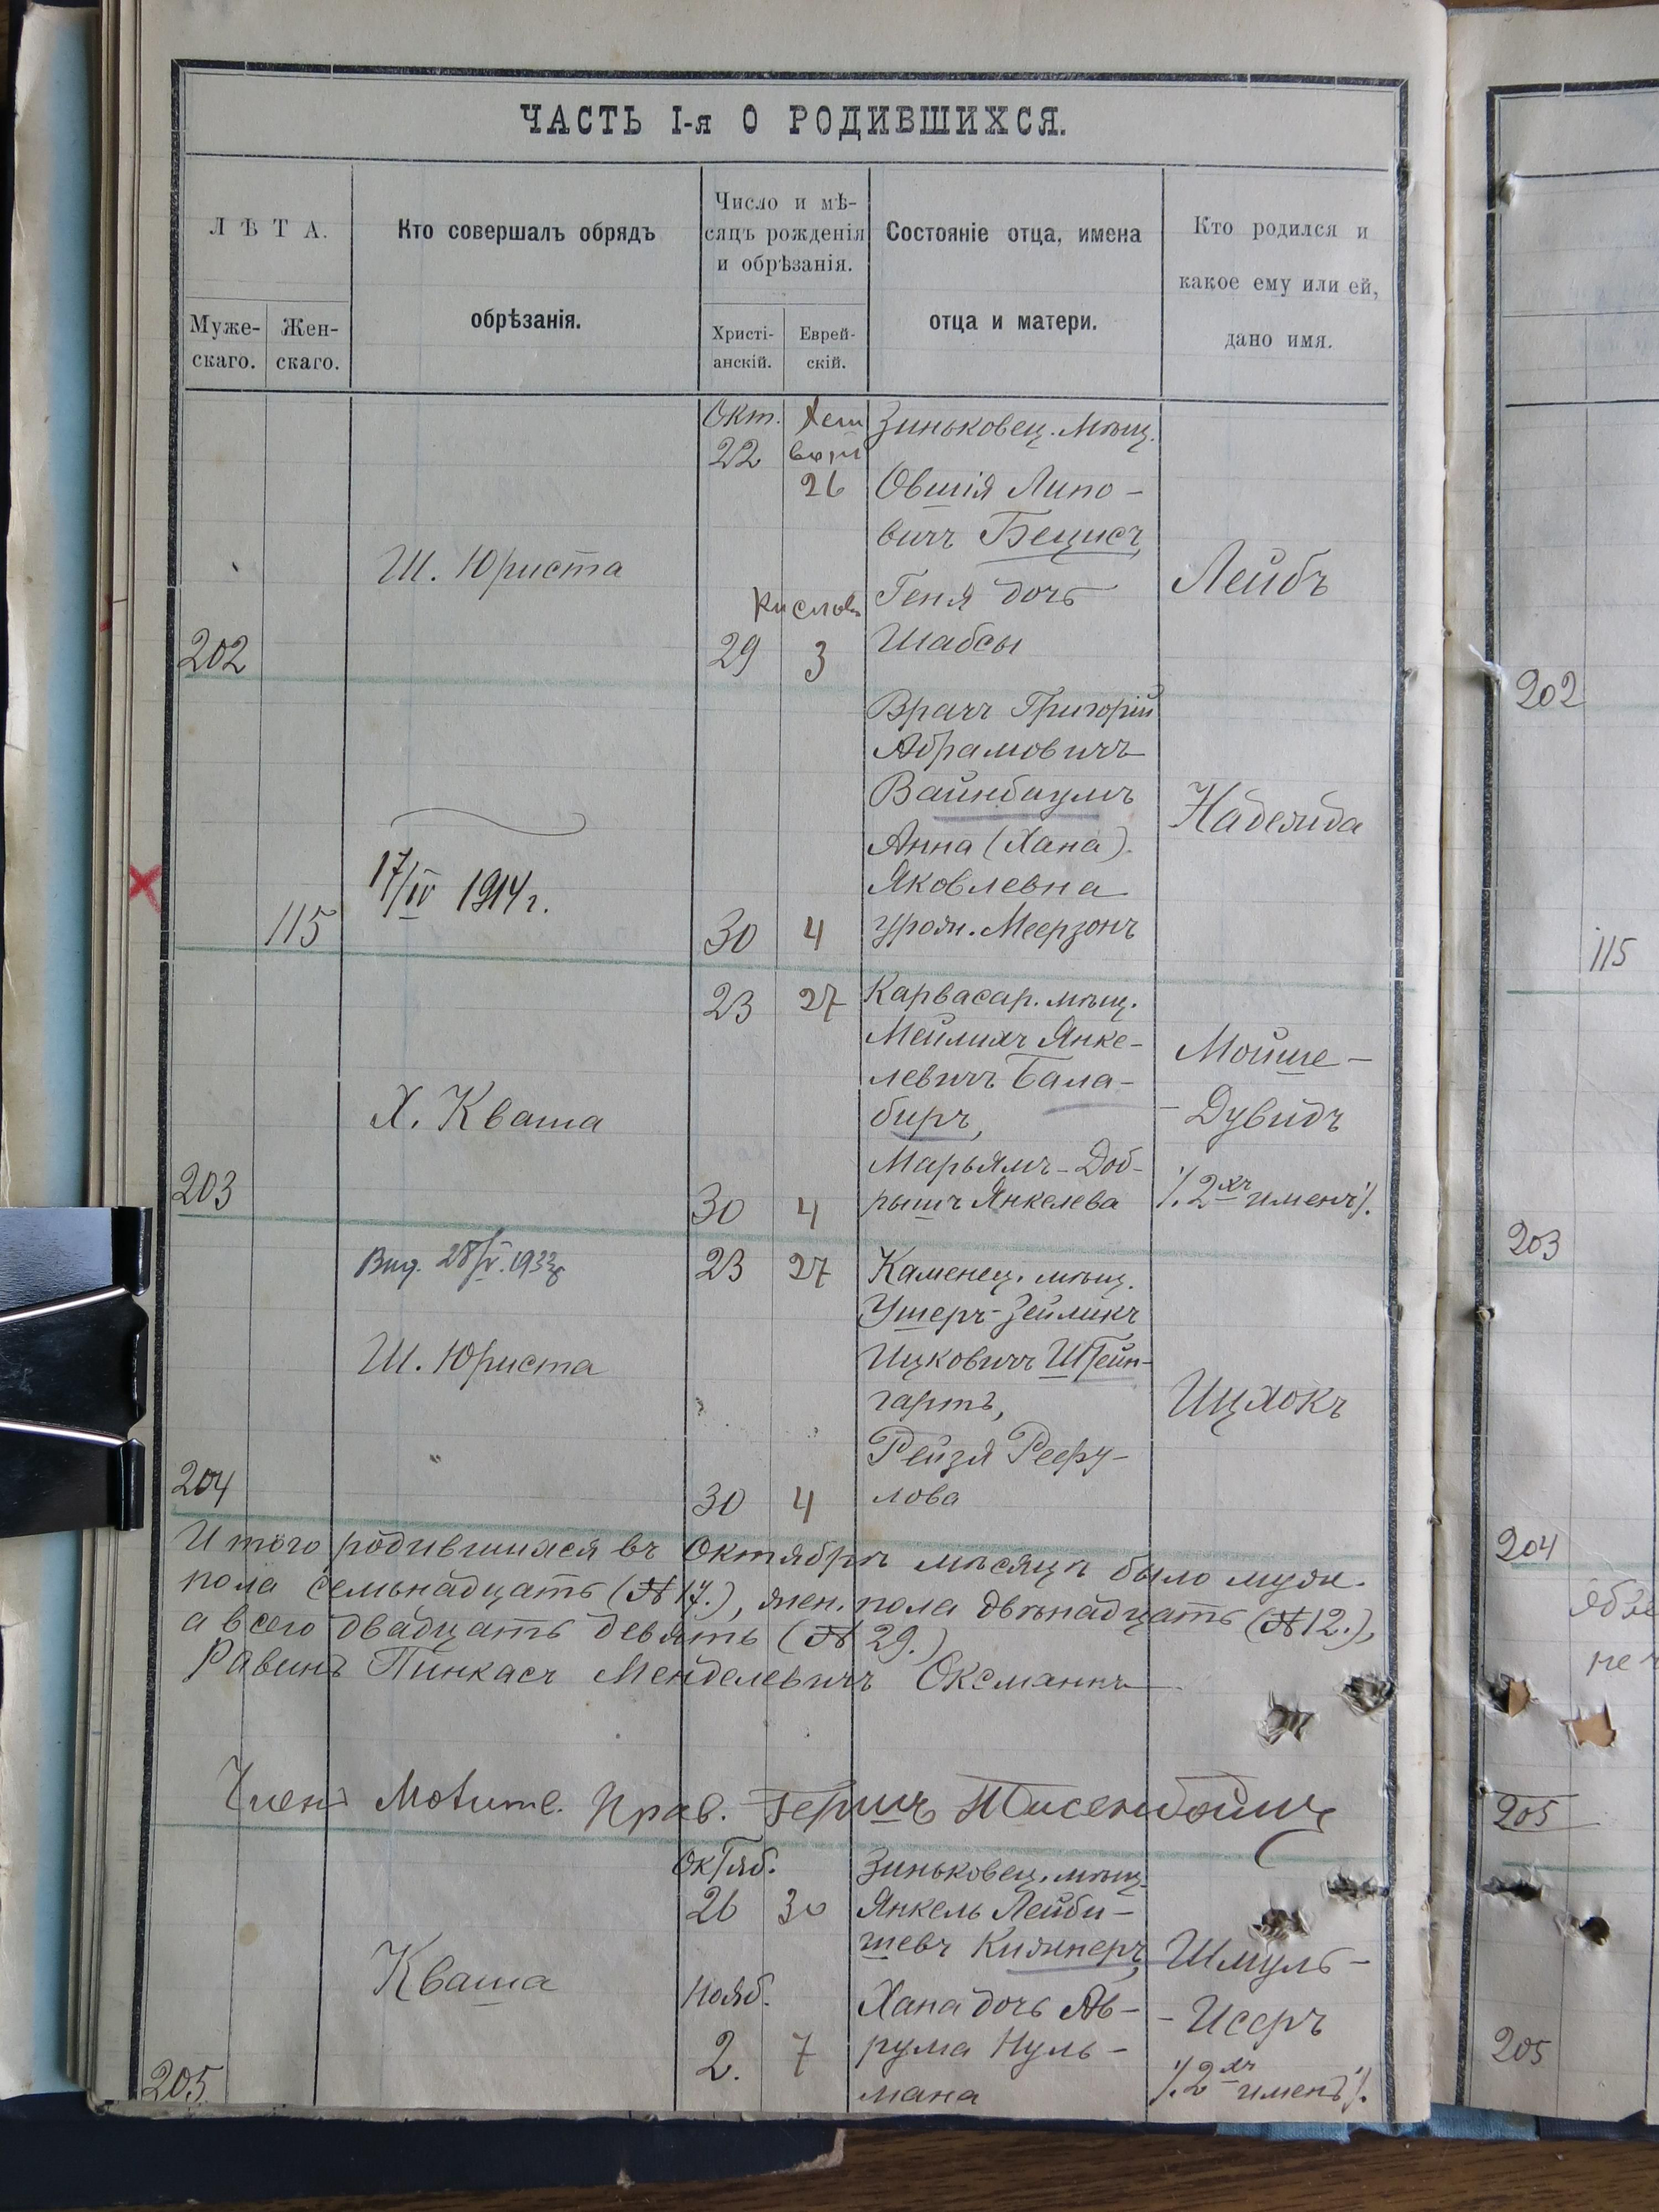 ЧАСТЬ I-я О РОДИВШИХСЯ.
ЛѢТА.
Муже-
скаго.
Жен-
скаго.
Кто совершалъ обрядъ
обрѣзанія.
Число и мѣ-
сяцъ рожденія
и обрѣзанія.
Христі-
анскій.
Еврей-
скій.
Состояніе отца, имена
отца и матери.
Кто родился и
какое ему или ей,
дано имя.
202
Ш. Юриста
Окт.
22
29
Хеш
вон
26
Кислов
3
Зиньковец. мѣщ.
Овшія Липо-
вичъ Бецисъ,
Геня дочь
Шабсы
Лейбъ
115
17/IV 1914 г.
30
4
Врачъ Григорій
Абрамовичъ
Вайнбаумъ
Анна (Хана).
Яковлевна
урожд. Меерзонъ
Надежда
203
Х. Кваша
23
27
30
4
Карвасар. мѣщ.
Меилихъ Янке-
левичъ Бала-
биръ,
Марьямъ-Доб-
рышъ Янкелева
Мойше-
-Дувидъ
/.2хъ именъ/.
204
Выд. 28/IV.1933
Ш. Юриста
23
27
30
4
Каменец. мѣщ.
Ушеръ-Зейликъ
Ицковичъ Штейн-
гартъ,
Рейзя Рефу-
лова
Ицхокъ
Итого родившихся въ Октябрѣ мѣсяцѣ было муж.
пола семьнадцать (№17.), жен. пола двѣнадцать (№12.),
а всего двадцать девять (№29.)
Равинъ Пинкасъ Менделевичъ Оксманъ
Членъ Молит. Прав. Гершъ
205
Кваша
Октяб.
26
30
Нояб.
2.
7
Зиньковец. мѣщ.
Янкель Лейби-
шевъ Кижнеръ,
Хана дочь Ав-
рума Нуль-
мана
Шмуль-
-Исеръ
/.2хъ именъ/.
202
115
203
204
205
205